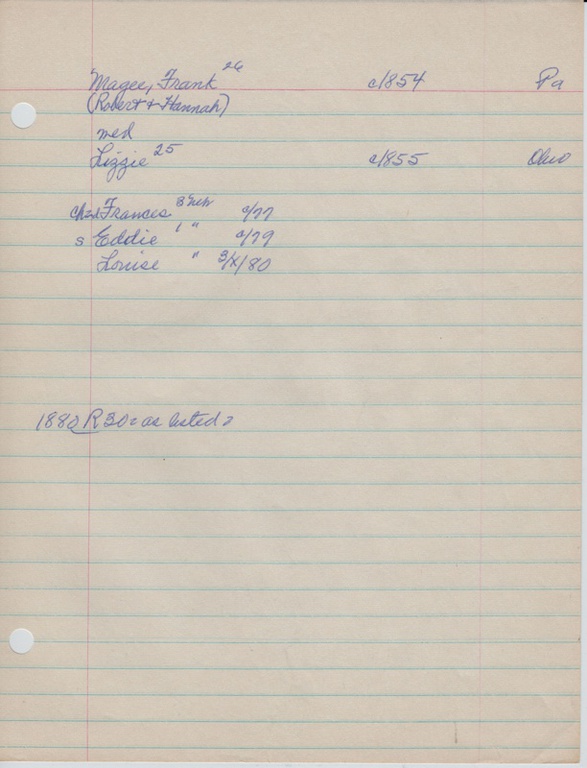 Magee, Frank 26 c/1854 Pa
(Robert + Hannah)
med
Lizzie 25 c/1855 Ohio
Frances 3 c/77
s Eddie 1 " c/79
Louise " 3/x/80
1880 R 30 as listed